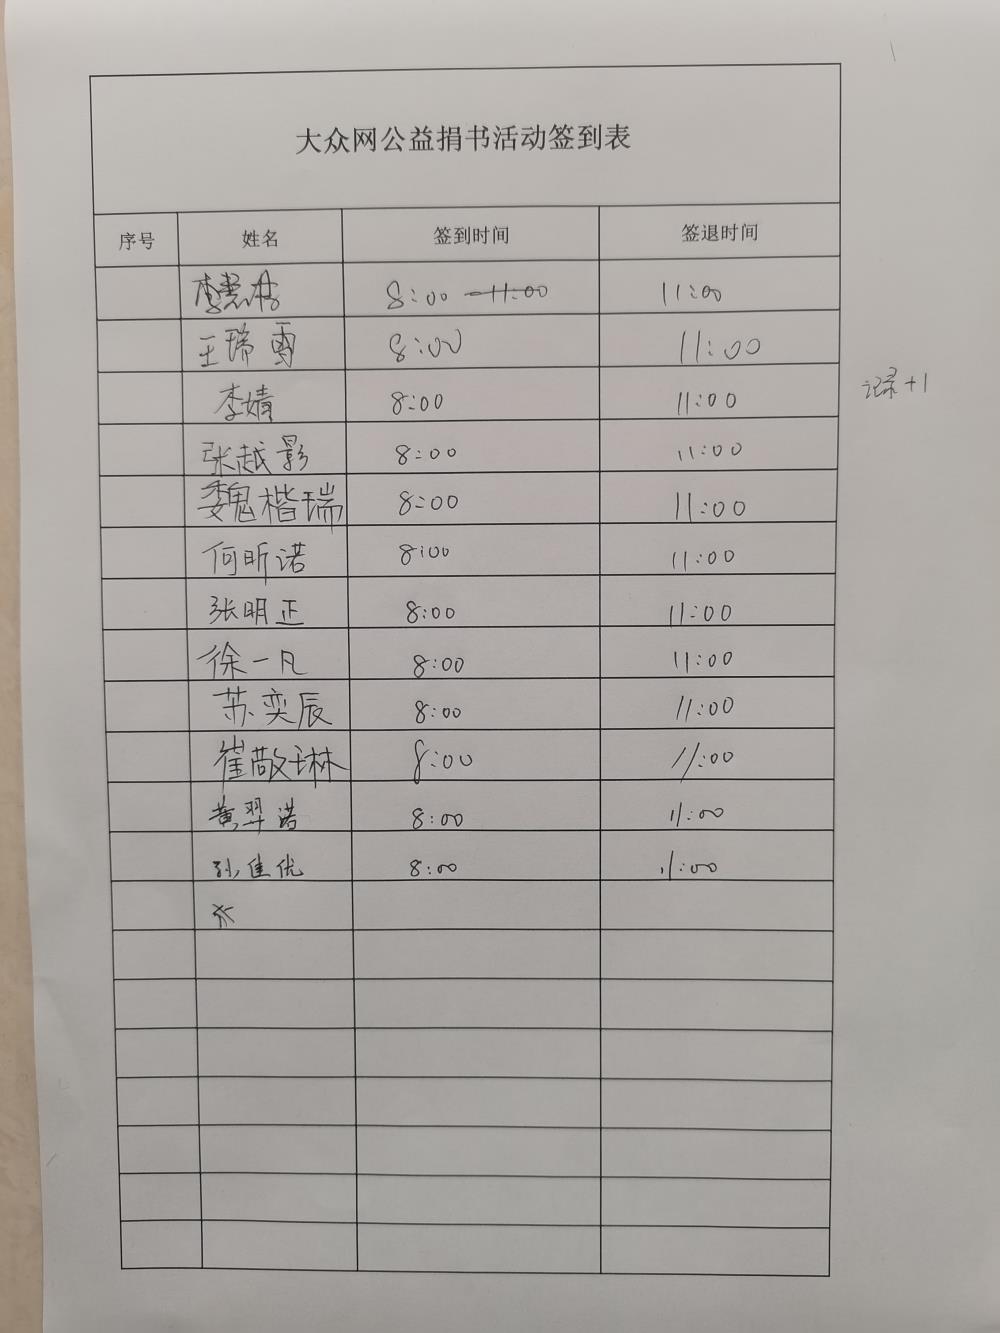 大众网公益捐书活动签到表
序号 姓名 签到时间 签退时间
李 8:00 -11:00 11:00
王瑞雪 8:00 11:00
李婧 8:00 11:00 记录+1
张越影 8:00 11:00
魏楷瑞 8:00 11:00
何昕诺 8:00 11:00
张明正 8:00 11:00
徐一凡 8:00 11:00
苏奕辰 8:00 11:00
崔敬琳 8:00 11:00
黄羿诺 8:00 11:00
孙佳优 8:00 11:00